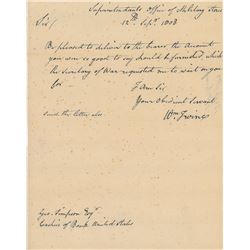 Superintendants Office of Military Stores
12th Sept. 1808
Sir
Be pleased to deliver to the bearer the amount
you were so good to say should be furnished, which
the Secretary of War requested me to wait on you
for
I Am Sir
Your Obedient Servant
Wm Irvine
Send the letter also
Geo. Simpson Esqr.
Cashier of Bank United States